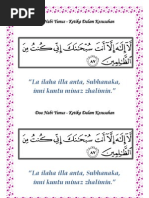 Doa Nabi Yunus - Ketika Dalam Kesusahan
لَّا إِلَٰهَ إِلَّا أَنتَ سُبْحَانَكَ إِنِّي كُنتُ مِنَ
الظَّالِمِينَ ٨٧
"La ilaha illa anta, Subhanaka,
inni kuntu minaz zhalimin."
Doa Nabi Yunus - Ketika Dalam Kesusahan
لَّا إِلَٰهَ إِلَّا أَنتَ سُبْحَانَكَ إِنِّي كُنتُ مِنَ
الظَّالِمِينَ ٨٧
"La ilaha illa anta, Subhanaka,
inni kuntu minaz zhalimin."